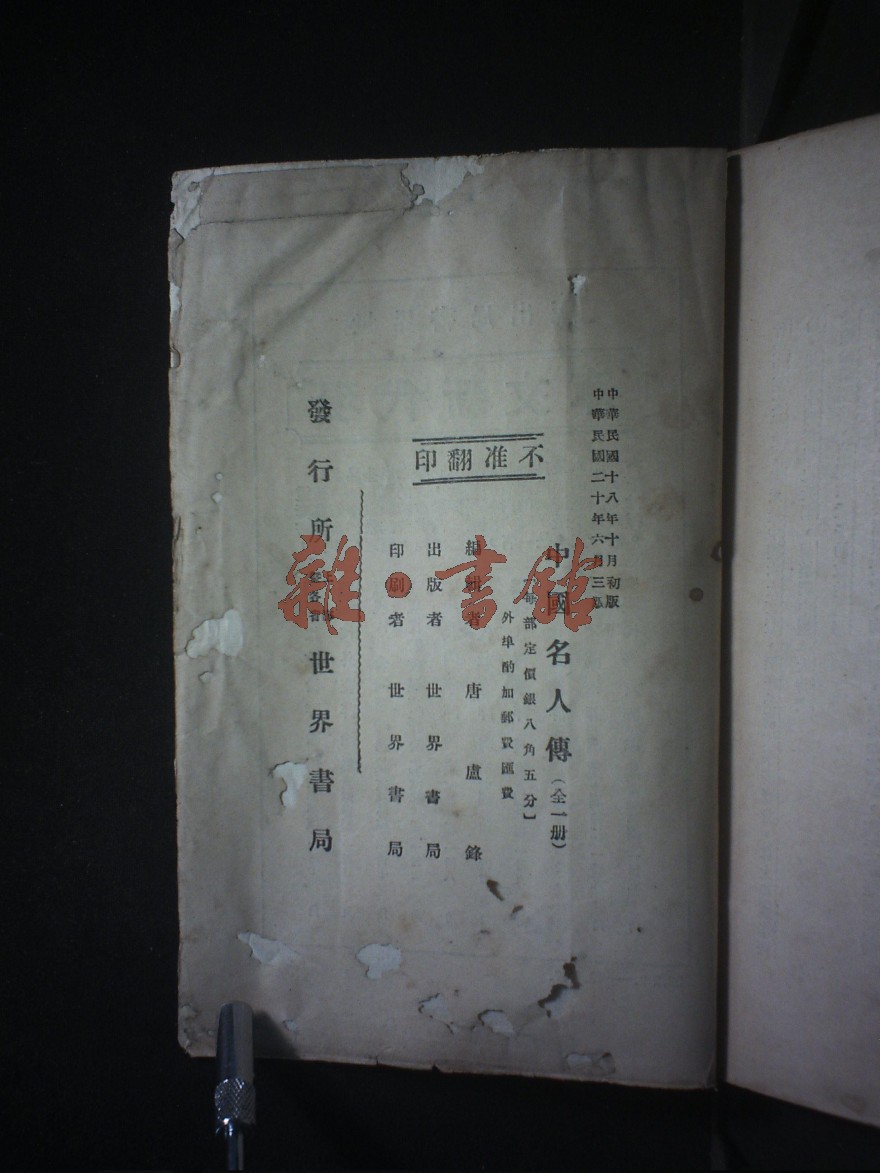 中華民國十八年十月初版
中華民國二十年六月三版
不准翻印
中國名人傳（全一册）
每部定價銀八角五分〕
外埠酌加郵費匯費
編輯者 唐盧鋒
出版者 世界書局
印刷者 世界書局
發行所 世界書局
雜·書館